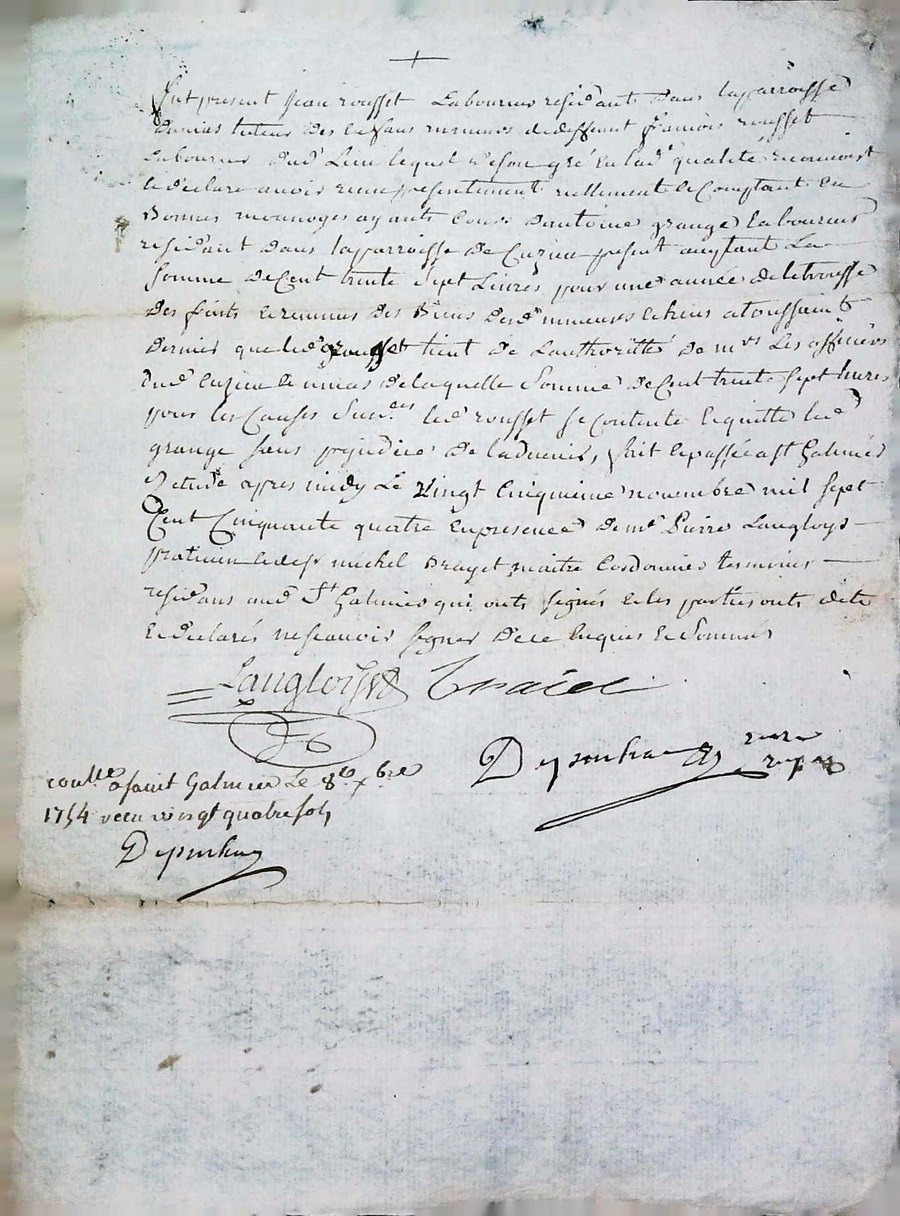 fut present jean rousset Laboureur residant dans laparroisse
tuteur des enfans mineurs dedeffunt francois rousset
Laboureur dud lieu lequel desongré enlad qualité reconnoist
& declare avoir receu presentement reellement & comptant en
Bonnes monnoyes ayants cours dantoine grange Laboureur
residant dans laparroisse de Cuzieu present acceptant La
somme de Cent trente sept Livres pour une année de
des fruits & revenus des Biens desd mineurs echeüe a toussaint
dernier que led rousset tient de Lauthoritté de mrs Les officiers
dud Cuzieu & de laquelle somme de Cent trente sept livres
pour les Causes susd led rousset se Contente & quitte led
grange sans prejudice de fait & passé a st Galmier
Etude apres midy Le vingt Cinquieme novembre mil sept
Cent Cinquante quatre en presence de me Pierre Langloys
praticien & de sr michel Brayet maitre Cordonnier tesmoins
residans aud St Galmier qui onts signés & les parties onts dit
& declarés ne scavoir signer de ce enquis & sommés
Langlois
Conlle a saint Galmier Le 8 xbre
1754 receu vingt quatre sols